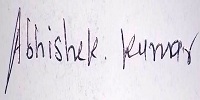 Abhishek. Kumar